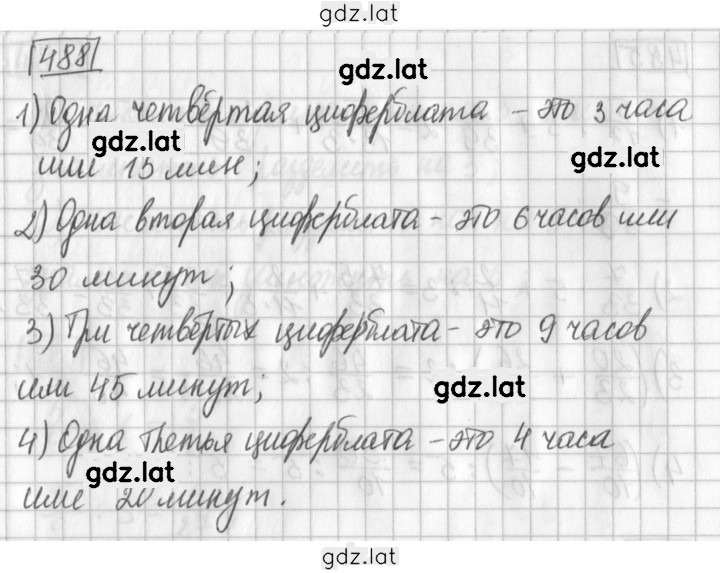 gdz.lat
488
gdz.lat
1) Одна четвёртая циферблата - это 3 часа
gdz.lat
gdz.lat
или 15 мин;
2) Одна вторая циферблата - это 6 часов или
30 минут;
3) Три четвёртых циферблата - это 9 часов
или 45 минут;
gdz.lat
4) Одна третья циферблата - это 4 часа
gdz.lat
или 20 минут.
gdz.lat